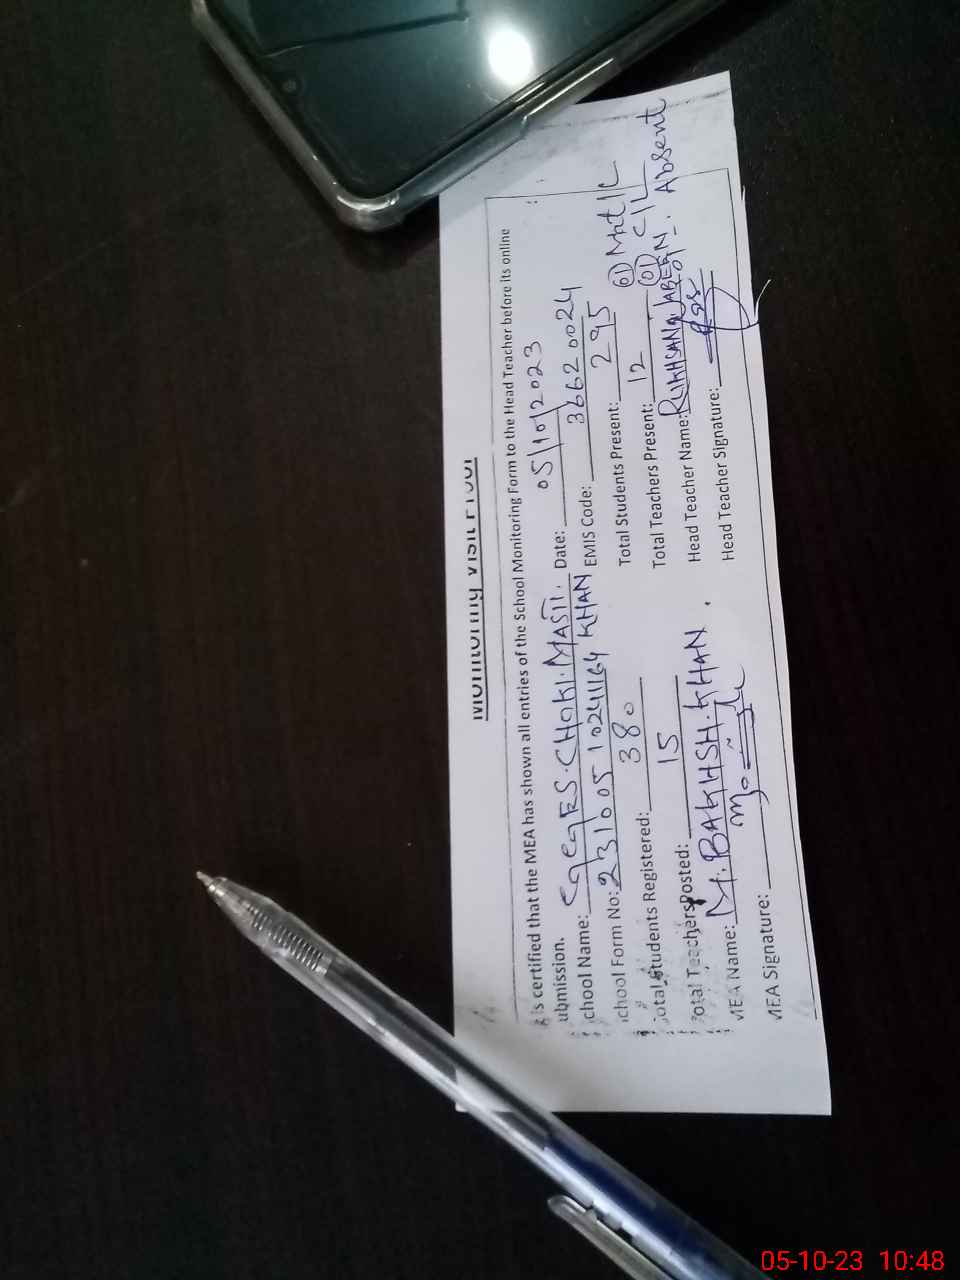 Monitoring Visit Proof
is certified that the MEA has shown all entries of the School Monitoring Form to the Head Teacher before its online
ubmission.
chool Name: CHOKI MASTI KHAN Date: 05/10/2023
chool Form No: 231005 10241164 EMIS Code: 36620024
otal Students Registered: 380 Total Students Present: 295
otal Teachers Posted: 15 Total Teachers Present: 12 01 Mat/L 01 C/L Absent
MEA Name: M. BAKHSH. KHAN. Head Teacher Name: RUKHSANA JABEEN.
MEA Signature: Head Teacher Signature:
05-10-23 10:48